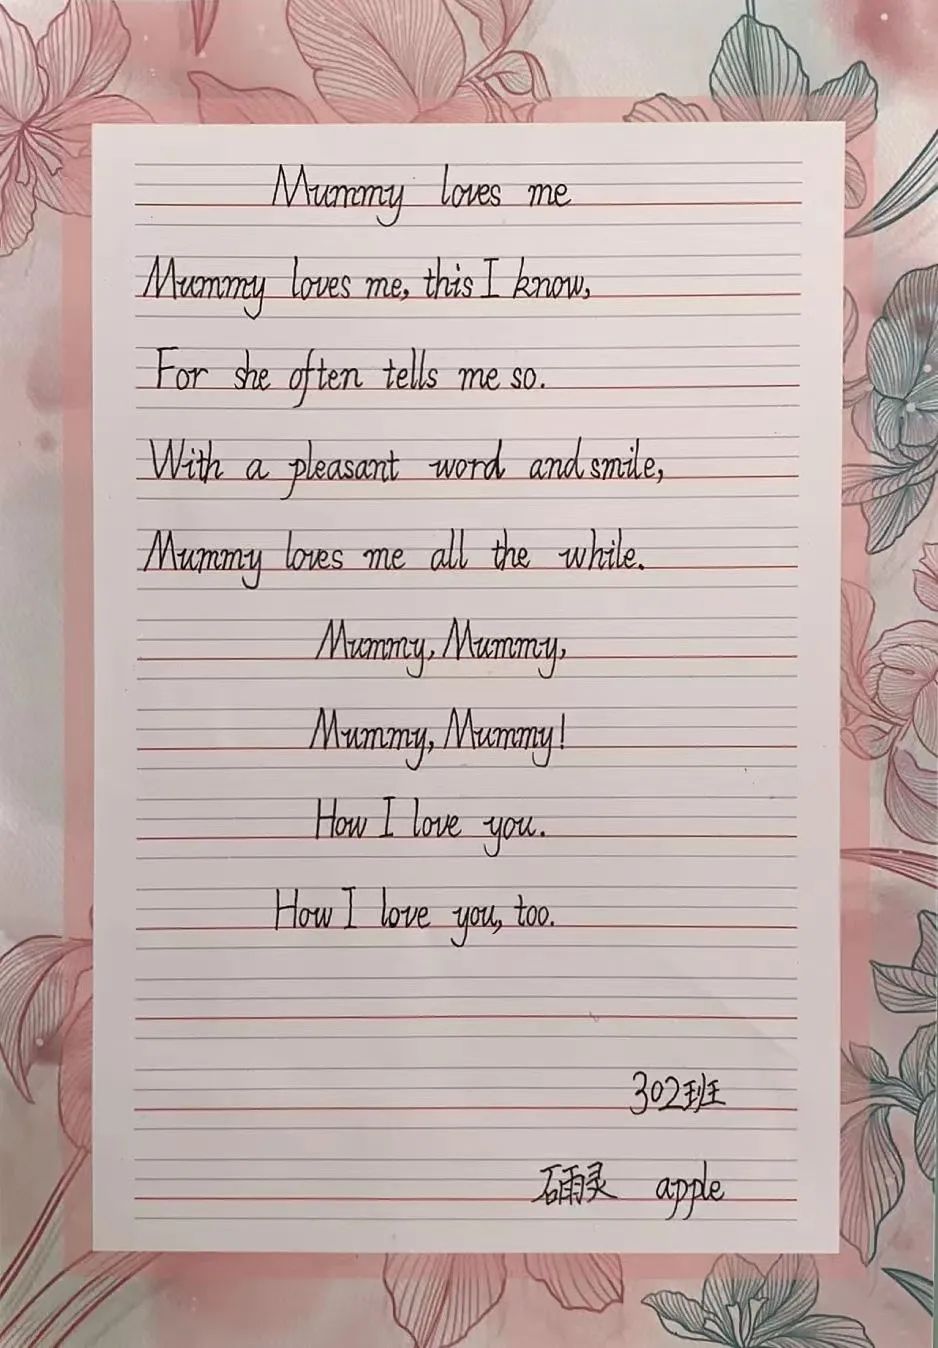 Mummy loves me
Mummy loves me, this I know,
For she often tells me so.
With a pleasant word and smile,
Mummy loves me all the while.
Mummy, Mummy,
Mummy, Mummy!
How I love you.
How I love you, too.
302班
石雨灵 apple